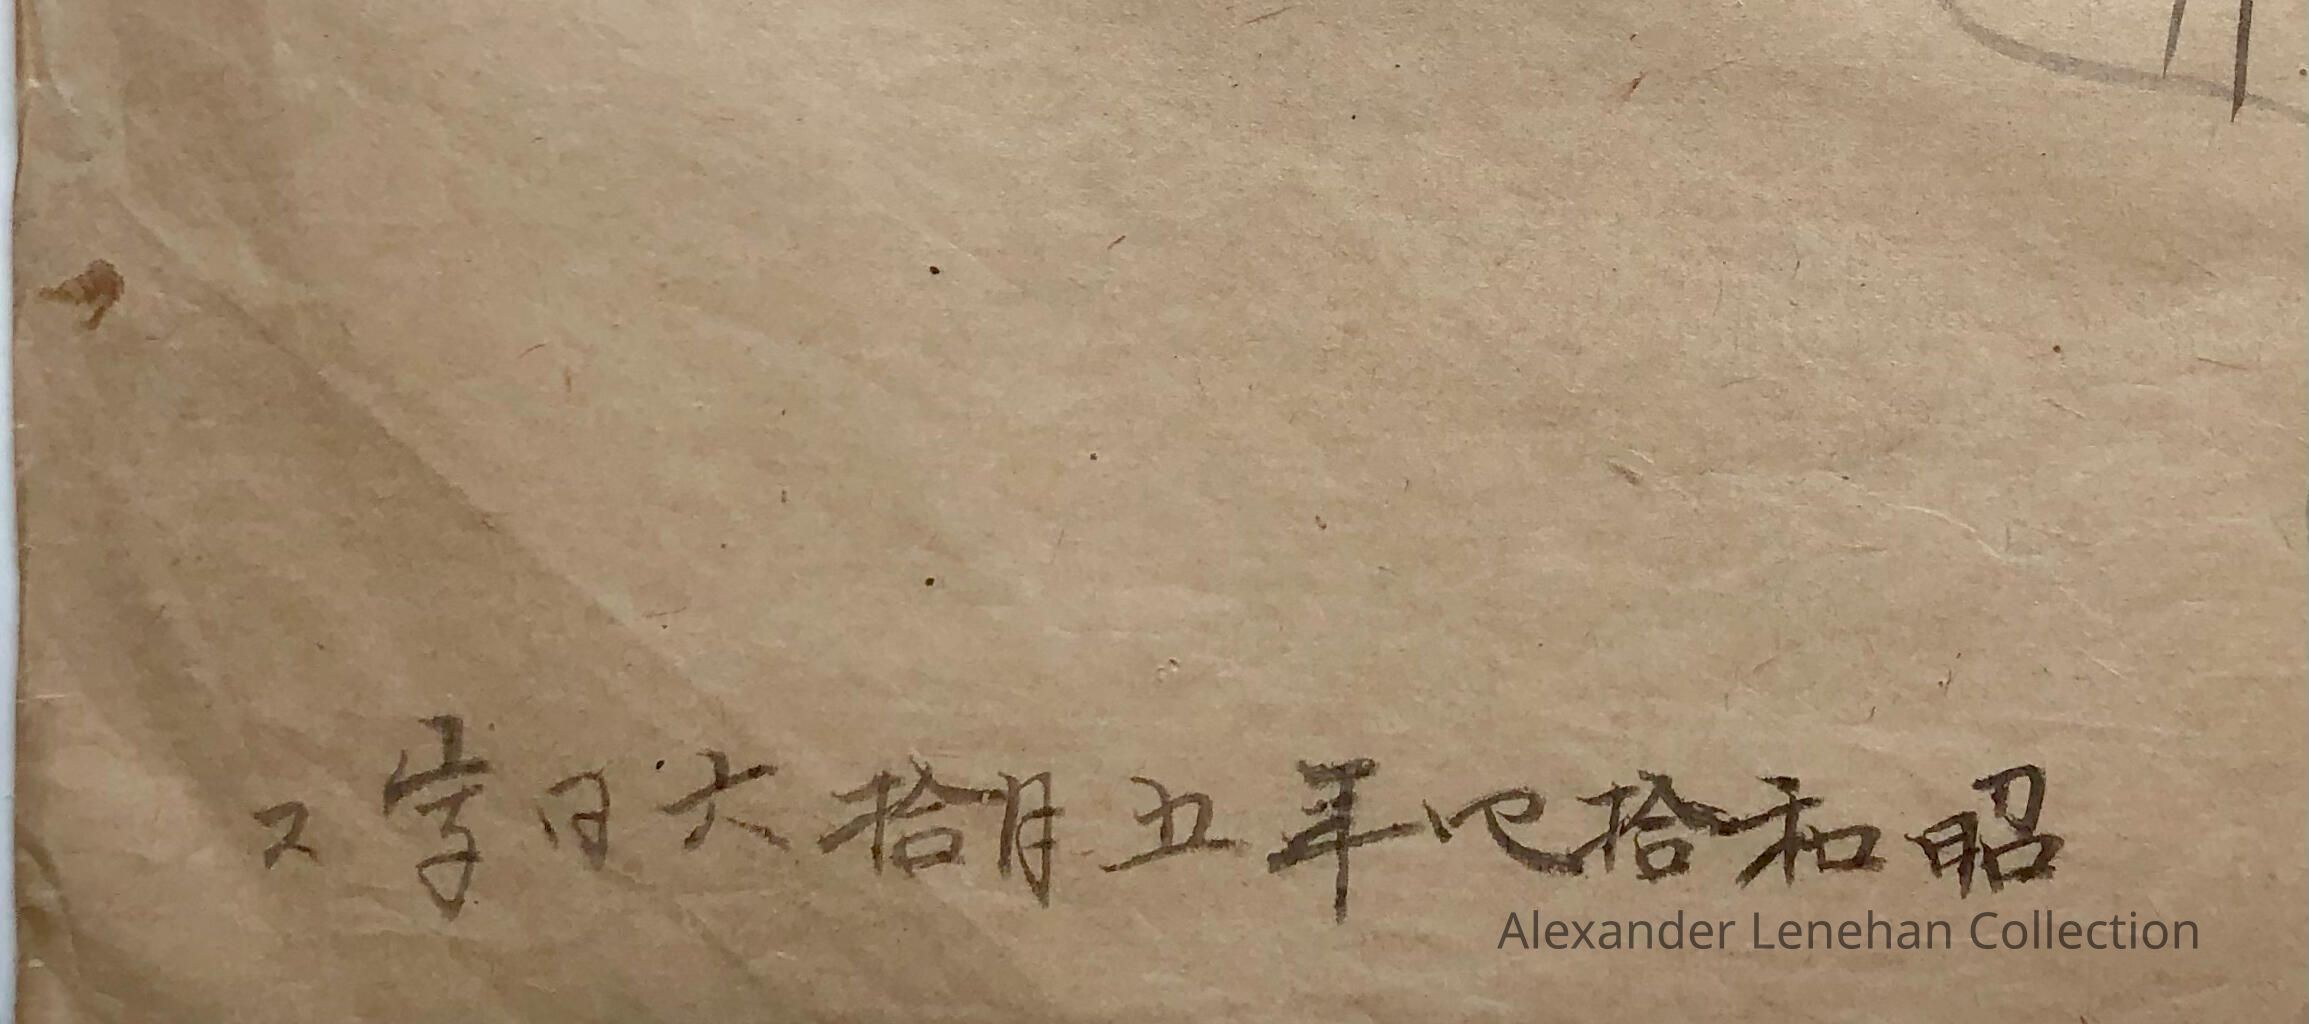 昭和拾四年五月拾六日写ス
Alexander Lenehan Collection